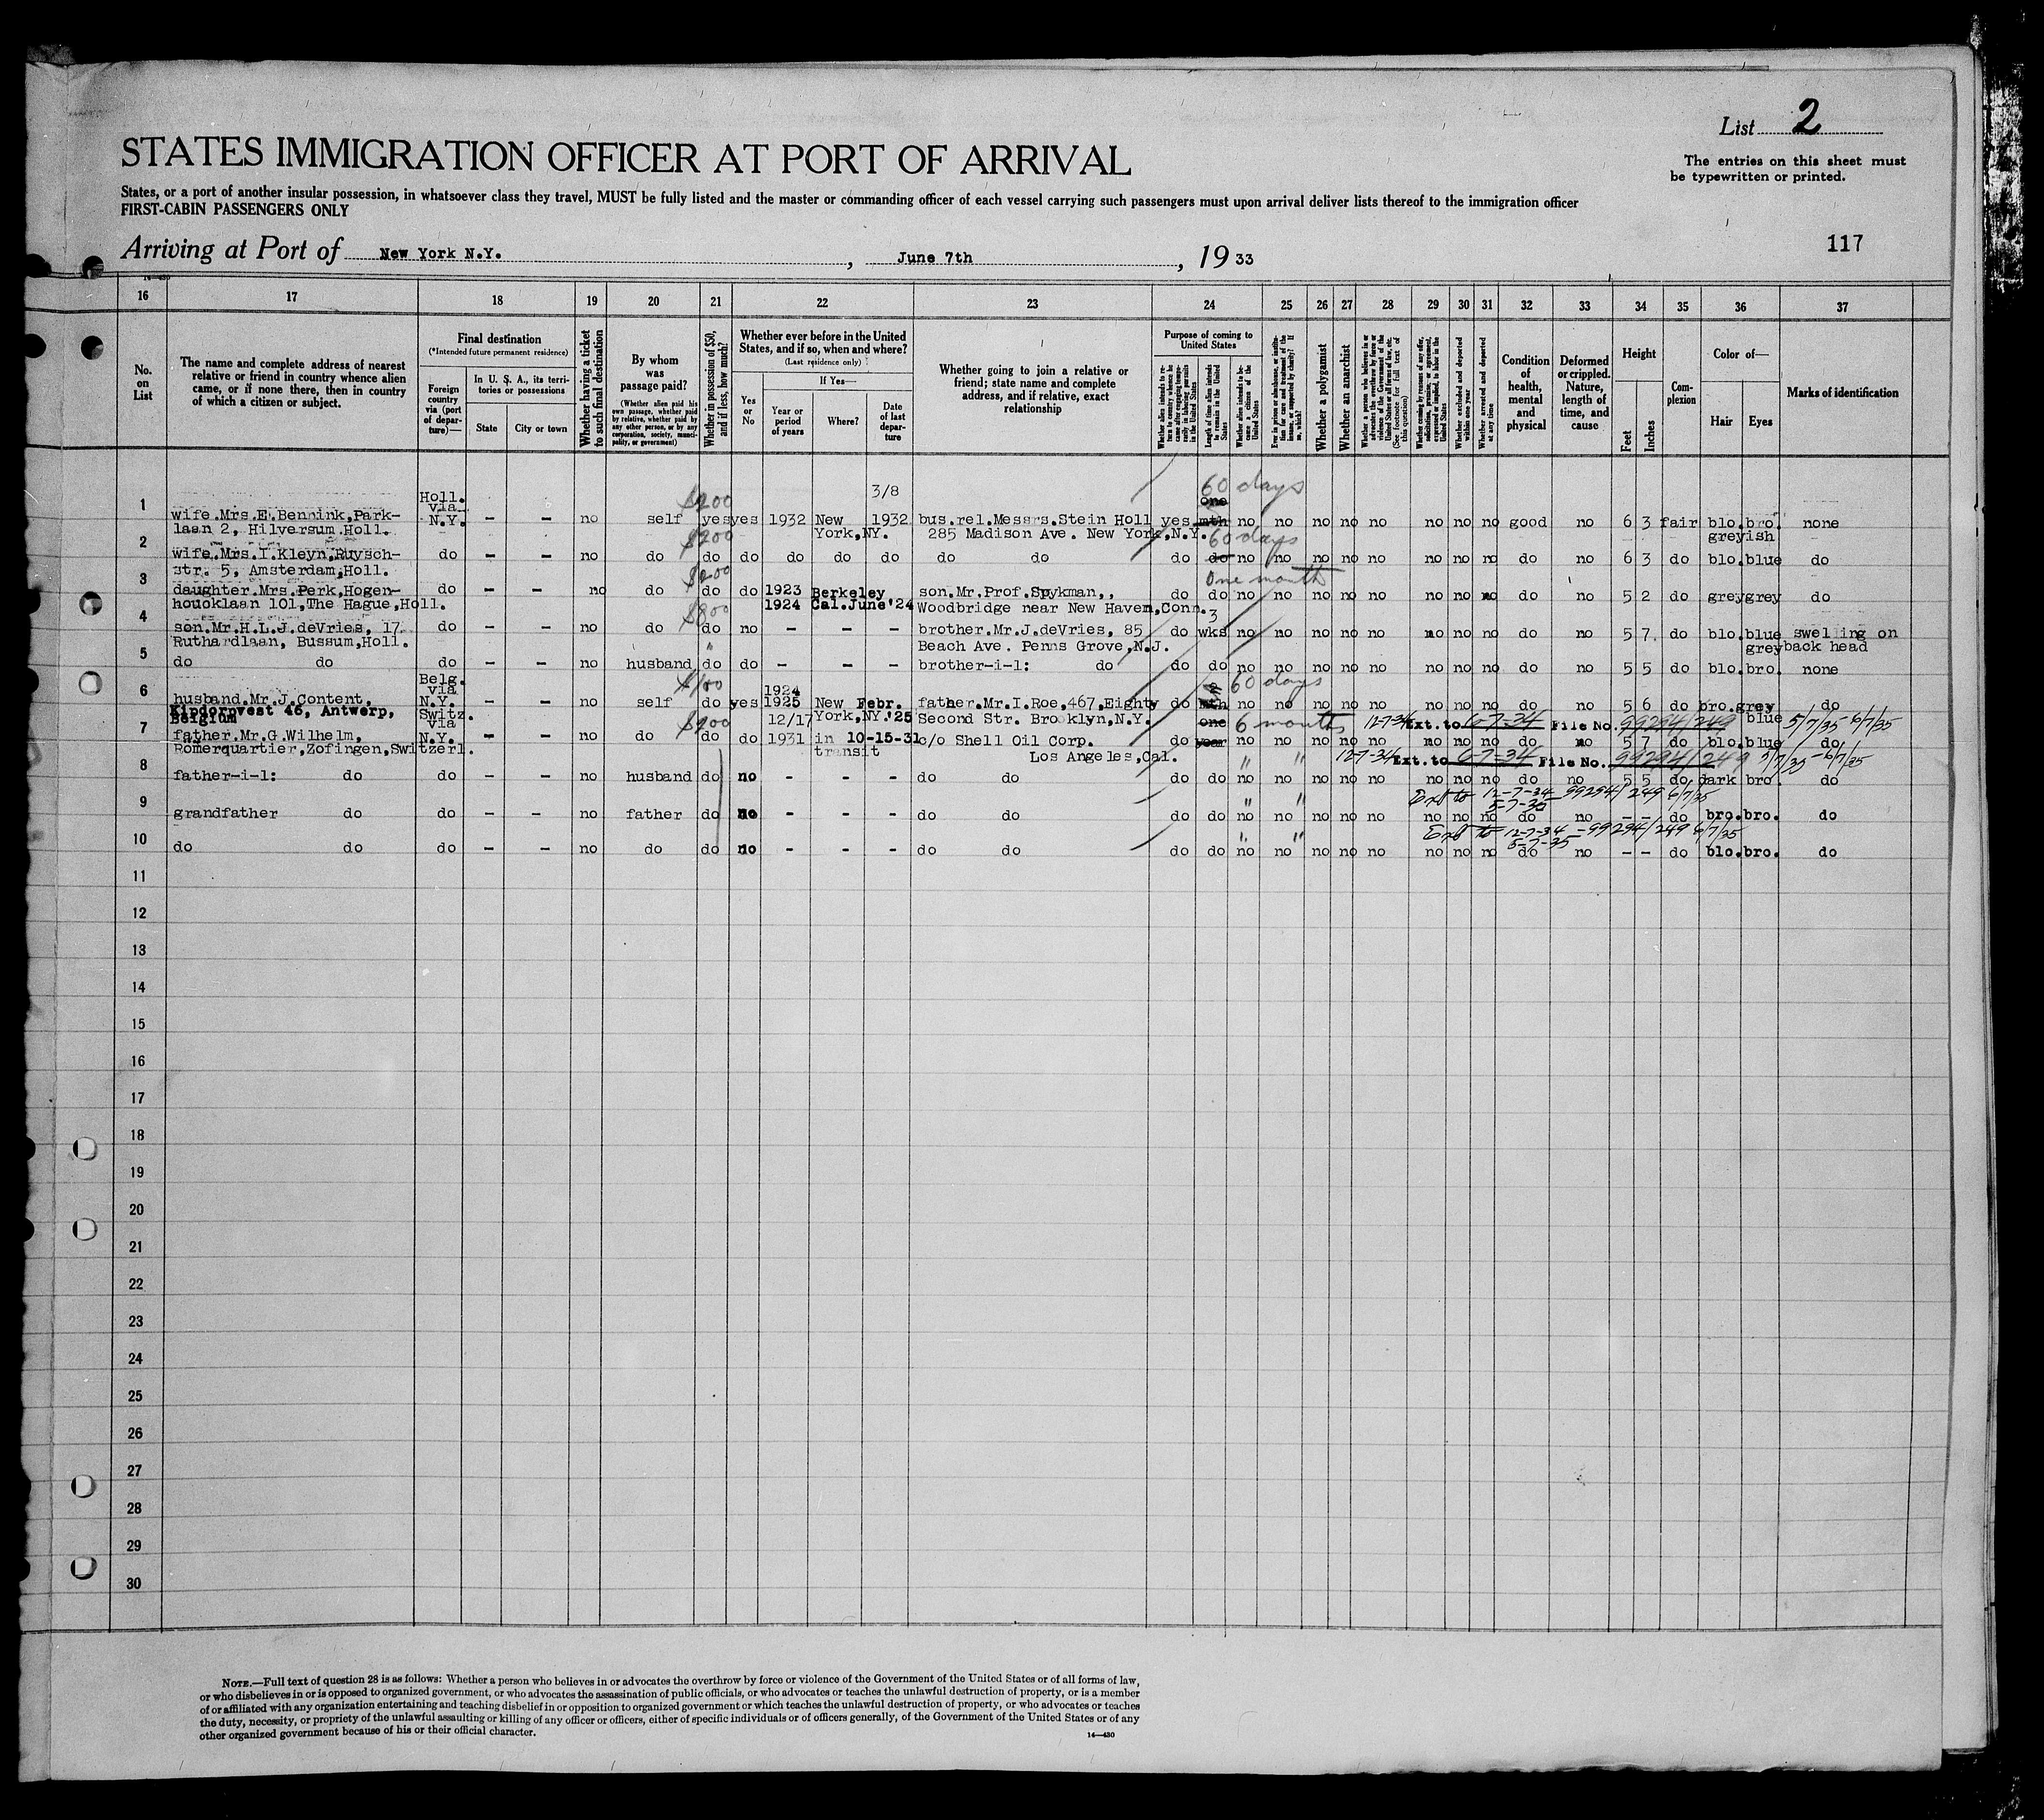 List 2
The entries on this sheet must
be typewritten or printed.
STATES IMMIGRATION OFFICER AT PORT OF ARRIVAL
States, or a port of another insular possession, in whatsoever class they travel, MUST be fully listed and the master or commanding officer of each vessel carrying such passengers must upon arrival deliver lists thereof to the immigration officer
FIRST-CABIN PASSENGERS ONLY
Arriving at Port of New York N.Y. , June 7th , 19 33
117
16 17 18 19 20 21 22 23 24 25 26 27 28 29 30 31 32 33 34 35 36 37
No. on List
The name and complete address of nearest relative or friend in country whence alien came, or if none there, then in country of which a citizen or subject.
Final destination
(*Intended future permanent residence)
Foreign country via (port of departure)—
In U. S. A., its territories or possessions
State
City or town
Whether having a ticket to such final destination
By whom was passage paid?
(Whether alien paid his own passage, whether paid by relative, whether paid by any other person, or by any corporation, society, municipality, or government)
Whether in possession of $50, and if less, how much?
Whether ever before in the United States, and if so, when and where?
(Last residence only)
Yes or No
If Yes—
Year or period of years
Where?
Date of last departure
Whether going to join a relative or friend; state name and complete address, and if relative, exact relationship
Purpose of coming to United States
Whether alien intends to return to country whence he came after engaging temporarily in laboring pursuits in the United States
Length of time alien intends to remain in the United States
Whether alien intends to become a citizen of the United States
Ever in prison or almshouse, or institution for care and treatment of the insane, or supported by charity? If so, which?
Whether a polygamist
Whether an anarchist
Whether a person who believes in or advocates the overthrow by force or violence of the Government of the United States or of all forms of law, etc. (See footnote for full text of this question)
Whether coming by reasons of any offer, solicitation, promise, or agreement, expressed or implied, to labor in the United States
Whether excluded and deported within one year
Whether arrested and deported at any time
Condition of health, mental and physical
Deformed or crippled. Nature, length of time, and cause
Height
Feet
Inches
Complexion
Color of—
Hair
Eyes
Marks of identification
Holl. $200 3/8 60 days
1 via one
wife.Mrs.E.Bennink,Park- N.Y. - - no self yes yes 1932 New 1932 bus.rel.Messrs.Stein Holl yes mth no no no no no no no no good no 6 3 fair blo. bro. none
laan 2, Hilversum Holl. $200 York,NY. 285 Madison Ave. New York,N.Y. 60 days greyish
2 wife.Mrs.I.Kleyn,Ruysch- do - - no do do do do do do do do do do no no no no no no no no do no 6 3 do blo. blue do
str. 5, Amsterdam,Holl. $200 One month
3 daughter.Mrs.Perk,Hogen- do - - no do do do 1923 Berkeley son.Mr.Prof.Spykman,, do do no no no no no no no no do no 5 2 do grey grey do
houcklaan 101,The Hague,Holl. 1924 Cal. June'24 Woodbridge near New Haven,Conn. 3
4 son.Mr.H.L.J.deVries, 17 do - - no do do no - - - brother.Mr.J.deVries, 85 do wks no no no no no no no no do no 5 7 do blo. blue swelling on
Ruthardlaan, Bussum,Holl. Beach Ave. Penns Grove,N.J. grey back head
5 do do do - - no husband do do - - - brother-i-l: do do do no no no no no no no no do no 5 5 do blo. bro. none
Belg. via $100 1924 60 days
6 husband.Mr.J.Content, N.Y. - - no self do yes 1925 New Febr. father.Mr.I.Roe,467,Eighty do mth no no no no no no no no do no 5 6 do bro. grey do
Kipdorpvest 46, Antwerp, Belgium Switz. via $200 12/17 York,NY.'25 Second Str. Brooklyn,N.Y. one 6 months 12-7-34 Ext. to 6-7-34 File No. 99294/249 blue 5/7/35 6/7/35
7 father.Mr.G.Wilhelm, N.Y. - - no do do do 1931 in 10-15-31 c/o Shell Oil Corp. do year no no no no no no no no do no 5 7 do blo. blue do
Romerquartier,Zofingen,Switzerl. transit Los Angeles,Cal. " " 12-7-34 Ext. to 6-7-34 File No. 99294/249 5/7/35 - 6/7/35
8 father-i-l: do do - - no husband do no - - - do do do do no no no no no no no no do no 5 5 do dark bro. do
" " Ext to 12-7-34 99294/249 6/7/35
5-7-35
9 grandfather do do - - no father do no - - - do do do do no no no no no no no no do no - - do bro. bro. do
" " Ext to 12-7-34 - 99294/249 6/7/35
5-7-35
10 do do do - - no do do no - - - do do do do no no no no no no no no do no - - do blo. bro. do
11
12
13
14
15
16
17
18
19
20
21
22
23
24
25
26
27
28
29
30
NOTE.—Full text of question 28 is as follows: Whether a person who believes in or advocates the overthrow by force or violence of the Government of the United States or of all forms of law,
or who disbelieves in or is opposed to organized government, or who advocates the assassination of public officials, or who advocates or teaches the unlawful destruction of property, or is a member
of or affiliated with any organization entertaining and teaching disbelief in or opposition to organized government or which teaches the unlawful destruction of property, or who advocates or teaches
the duty, necessity, or propriety of the unlawful assaulting or killing of any officer or officers, either of specific individuals or of officers generally, of the Government of the United States or of any
other organized government because of his or their official character.
14—430